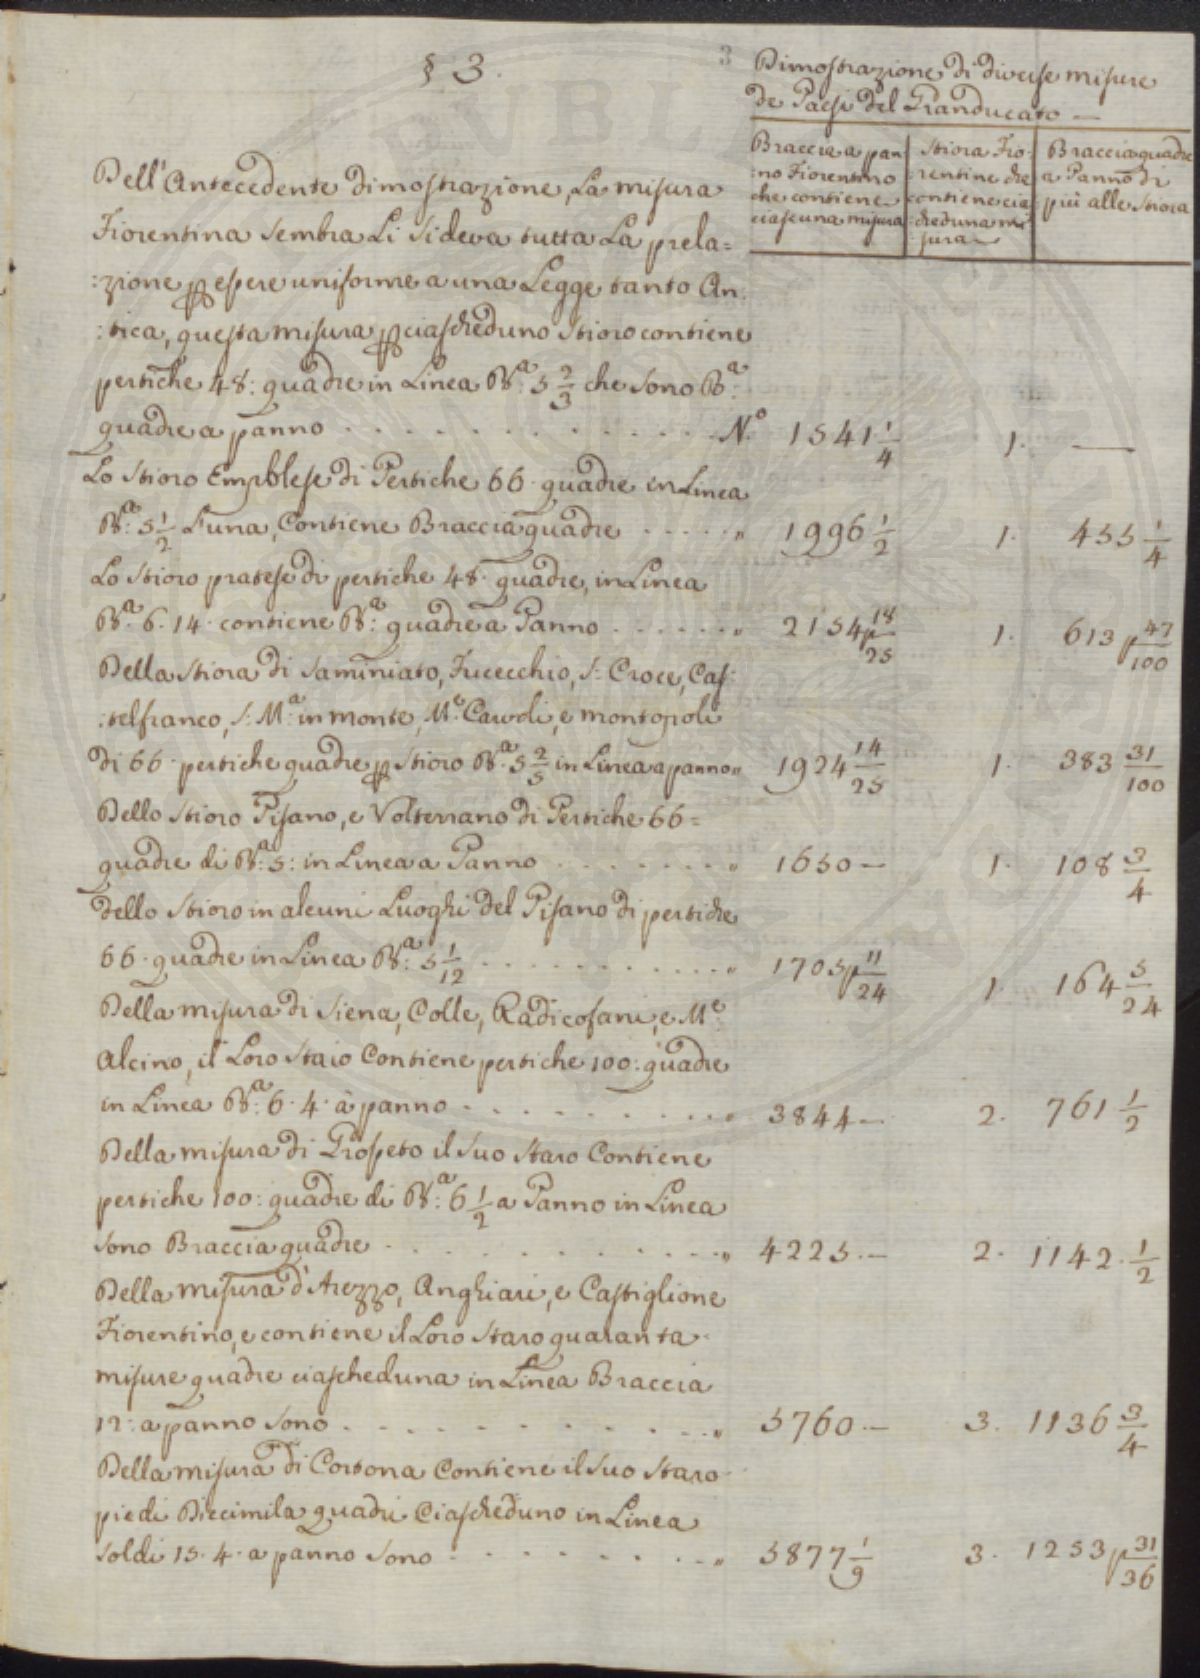 § 3.
3
Dimostrazione di diverse misure
de Paesi del Granducato —
Braccia a pan:
:no Fiorentino
che contiene
ciascuna misura
Stiora Fio:
:rentine che
contiene cia:
:scheduna mi:
:sura
Braccia quadre
a Panno di
più alle Stiora
Dell'Antecedente dimostrazione, La misura
Fiorentina sembra Li si deva tutta La prela=
:zione p essere uniforme a una Legge tanto An:
:tica, questa misura p ciascheduno Stioro contiene
pertiche 48: quadre in Linea Bª: 5 2/3 che sono Bª:
quadre a panno . . . . . . . . . . . . Nº. 1541 1/4 1. —
Lo Stioro Empolese di Pertiche 66. quadre in Linea
Bª: 5 1/2 L'una, Contiene Braccia quadre . . . . . „ 1996 1/2 1. 455 1/4
Lo Stioro pratese di pertiche 48. quadre, in Linea
Bª: 6. 14. contiene Bª: quadre a Panno . . . . . . „ 2154 18/25 1. 613 47/100
Della Stiora di Saminiato, Fucecchio, S: Croce, Cas:
:telfranco, S: Mª: in monte, Mᵉ: Carvoli, e montopoli
di 66. pertiche quadre p Stioro Bª: 5 2/5 in Linea a panno „ 1924 14/25 1. 383 31/100
Dello Stioro Pisano, e Volterrano di Pertiche 66=
quadre di Bª: 5: in Linea a Panno . . . . . . . . „ 1650 — 1. 108 3/4
dello Stioro in alcuni Luoghi del Pisano di pertiche
66. quadre in Linea Bª: 5 1/12 . . . . . . . . . . „ 1705 11/24 1. 164 5/24
Della misura di Siena, Colle, Radicofani, e Mᵉ:
Alcino, il Loro Staio Contiene pertiche 100: quadre
in Linea Bª: 6. 4. à panno . . . . . . . . . . „ 3844 — 2. 761 1/2
Della misura di Grosseto il Suo Staro Contiene
pertiche 100: quadre di Bª: 6 1/2 a Panno in Linea
sono Braccia quadre . . . . . . . . . . . . „ 4225. — 2. 1142. 1/2
Della misura d'Arezzo, Anghiari, e Castiglione
Fiorentino, e contiene il Loro Staro quaranta
misure quadre ciascheduna in Linea Braccia
12: a panno sono . . . . . . . . . . . „ 5760 — 3. 1136 3/4
Della misura di Cortona Contiene il Suo Staro
piedi Diecimila quadri Ciascheduno in Linea
soldi 15. 4. a panno sono . . . . . . . . „ 5877 1/9 3. 1253 31/36